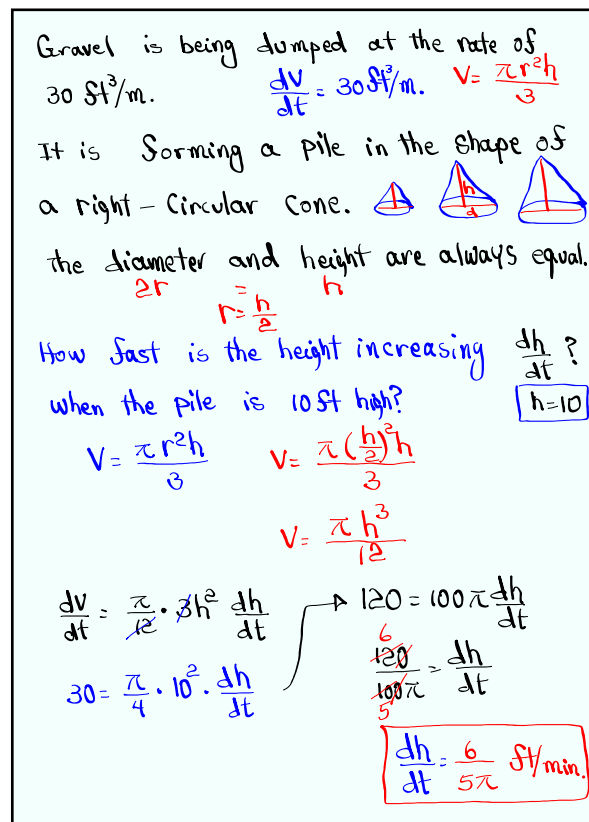 Gravel is being dumped at the rate of
30 ft³/m. dV/dt = 30 ft³/m. V = πr²h/3
It is forming a pile in the shape of
a right-Circular Cone. h d
the diameter and height are always equal.
2r = h
r = h/2
How fast is the height increasing dh/dt ?
when the pile is 10ft high? h=10
V = πr²h/3 V = π(h/2)²h/3
V = πh³/12
dV/dt = π/12 · 3h² dh/dt 120 = 100π dh/dt
6
30 = π/4 · 10² · dh/dt 120/100π = dh/dt
5
dh/dt = 6/5π ft/min.